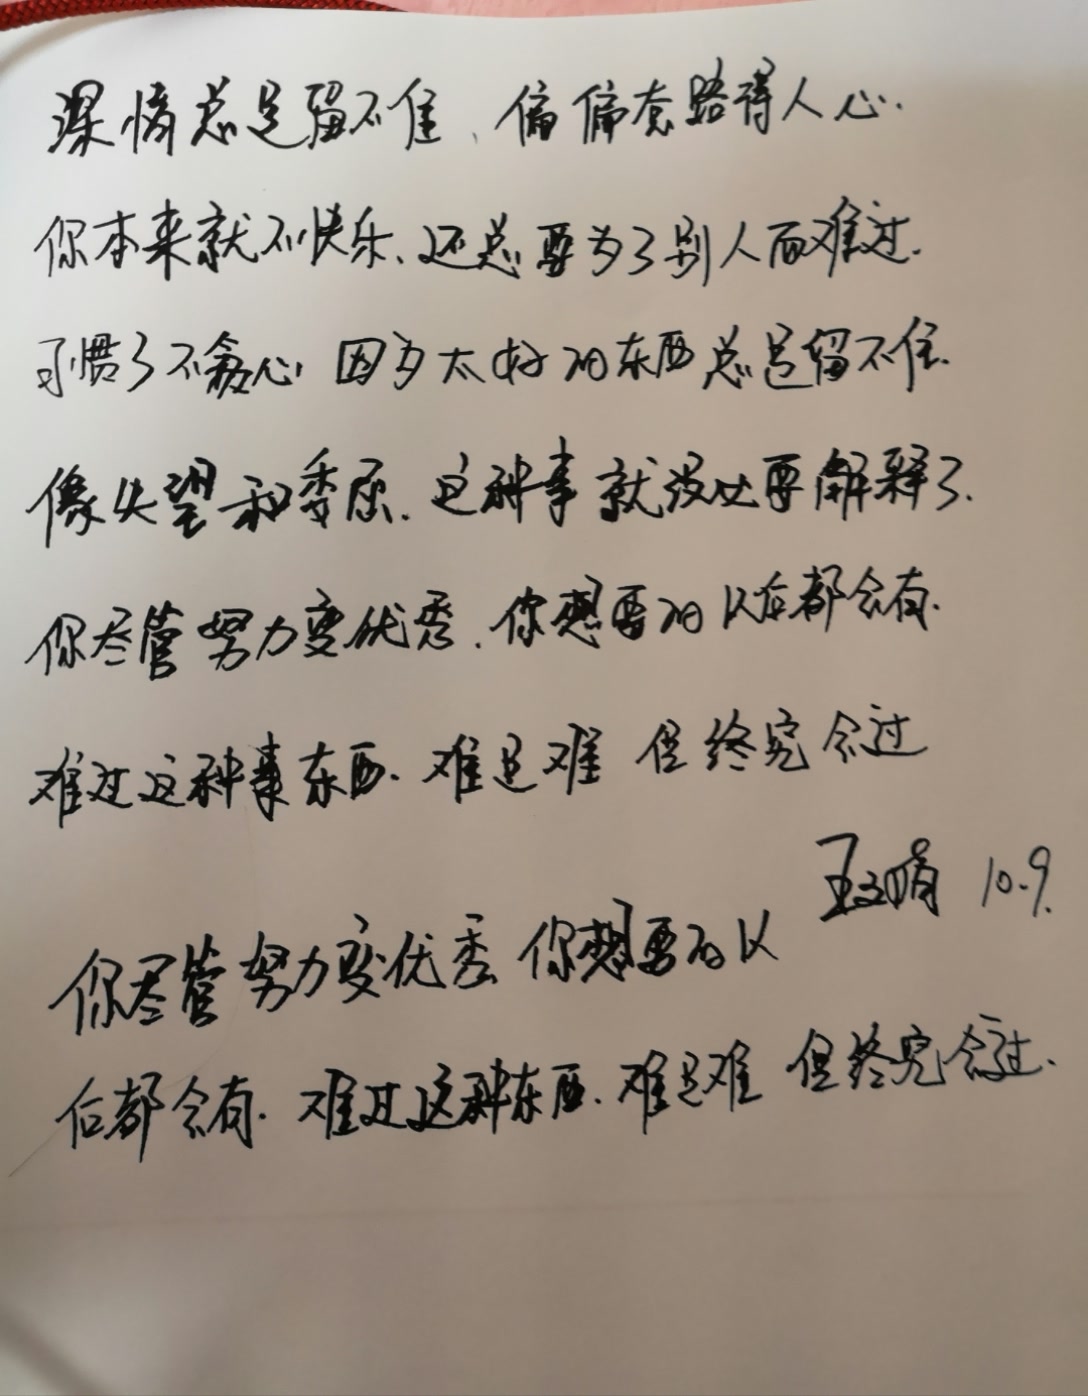 深情总是留不住、偏偏套路得人心.
你本来就不快乐、还总要为了别人而难过.
习惯了不贪心 因为太好的东西总是留不住.
像失望和委屈.这种事就没必要解释了.
你尽管努力变优秀.你想要的以后都会有.
难过这种事东西.难是难 但终究会过
王文娟 10.9.
你尽管努力变优秀 你想要的以
后都会有.难过这种东西.难是难 但终究会过.